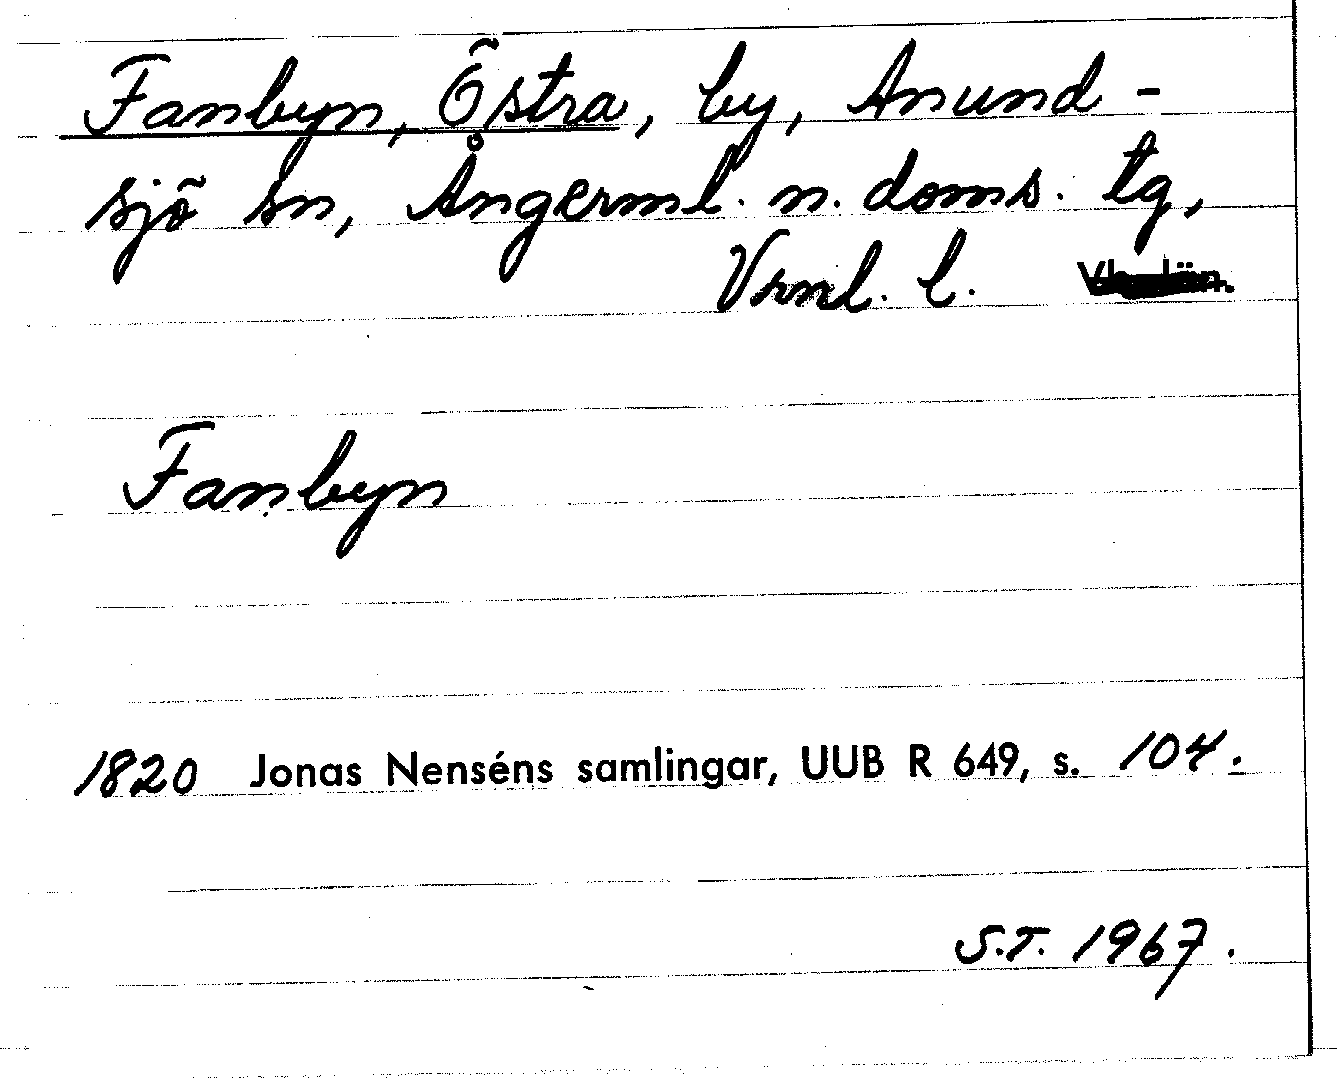 Fanbyn, Östra, by, Anund-
sjö sn, Ångerml. n. doms. tg,
Vrnl. l.
Fanbyn
1820 Jonas Nenséns samlingar, UUB R 649, s. 104.
S.T. 1967.